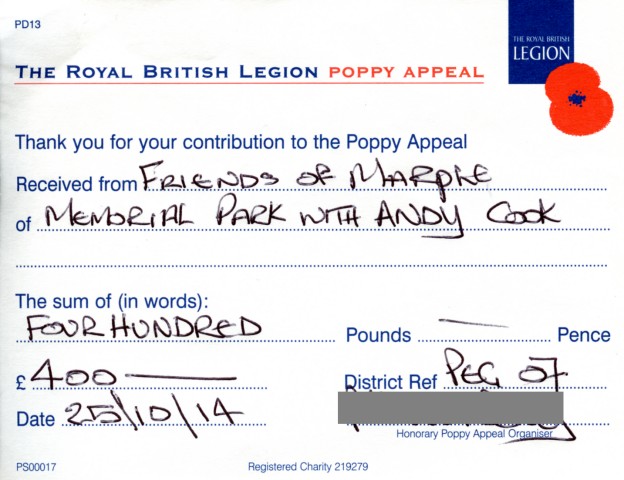 PD13
THE ROYAL BRITISH
LEGION
THE ROYAL BRITISH LEGION POPPY APPEAL
Thank you for your contribution to the Poppy Appeal
Received from FRIENDS OF MARPLE
of MEMORIAL PARK WITH ANDY COOK
The sum of (in words):
FOUR HUNDRED Pounds — Pence
£ 400 — District Ref PEG 07
Date 25/10/14
Honorary Poppy Appeal Organiser
PS00017 Registered Charity 219279